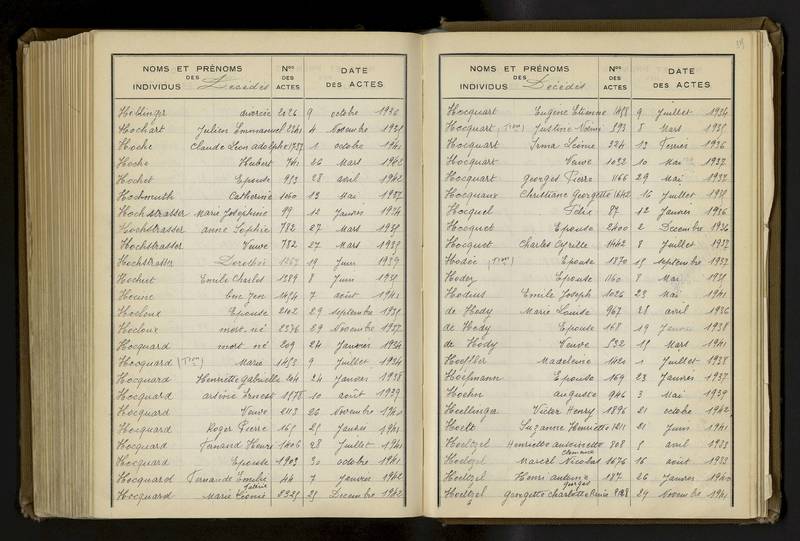 NOMS ET PRÉNOMS DES INDIVIDUS Décédés Nos DES ACTES DATE DES ACTES
divorcée 2026 9 octobre 1936
Hochart Julien Emmanuel 2241 4 Novembre 1935
Hoche Claude Léon adolphe 1757 1 octobre 1941
Hoche Hubert 741 26 Mars 1942
Hochet Epouse 953 28 avril 1942
Hochmuth Catherine 1060 13 Mai 1937
Hochstrasser Marie Joséphine 99 12 Janvier 1934
Hochstrasser anne Sophie 782 27 Mars 1935
Hochstrasser Veuve 782 27 Mars 1935
Hochstrasser Dorothée 19 Juin 1939
Emile Charles 1389 8 Juin
7 août 1941
Hocloux Epouse 2102 29 septembre 1935
Hocloux mort-né 2376 29 Novembre 1937
Hocquard mort-né 209 24 Janvier 1934
Hocquard Marie 1453 9 Juillet 1934
Hocquard Henriette Gabrielle 204 24 Janvier 1938
Hocquard arsène Ernest 1578 10 août 1939
Hocquard Veuve 2113 26 Novembre 1940
Hocquard Roger Pierre 165 25 Janvier 1941
Hocquard Fernand Henri 1406 28 Juillet 1941
Hocquard Epouse 1903 30 octobre 1941
Hocquard Fernande Emilie 44 7 Janvier 1942
Valérie
Hocquard Marie Léonie 25 Décembre 1942
NOMS ET PRÉNOMS DES INDIVIDUS Décédés Nos DES ACTES DATE DES ACTES
Hocquart Eugène Etienne 1458 9 Juillet 1934
Hocquart Justine Noémie 593 8 Mars 1935
Hocquart Irma Léonie 324 13 Février 1936
Hocquart Veuve 1032 10 Mai 1937
Hocquart Georges Pierre 1166 29 Mai 1937
Hocquaux Christiane Georgette 1642 16 Juillet
Hocquel 87 12 Janvier 1936
Hocquet Epouse 2400 2 Décembre 1936
Hocquet Charles Cyrille 1442 8 Juillet 1937
Epouse 1870 septembre
Epouse 1160 8 Mai
Hodius Emile Joseph 1026 23 Mai 1941
de Hody Marie Louise 967 28 avril 1936
de Hody Epouse 168 19 Janvier 1938
de Hody Veuve 532 15 Mars 1941
Hoeffler Madeleine 1420 1 Juillet 1938
Epouse 169 23 Janvier 1937
Hoehn auguste 946 3 Mai 1939
Victor Henry 1896 21 octobre 1942
Hoelt Suzanne Henriette 1211 21 Juin 1941
Hoeltzel Henriette antoinette 808 5 avril 1933
Clémence
Hoeltzel Marcel Nicolas 1676 16 août 1933
Hoeltzel Henri antoine 187 26 Janvier 1940
Georges
Hoeltzel Georgette Charlotte 29 Novembre 1941